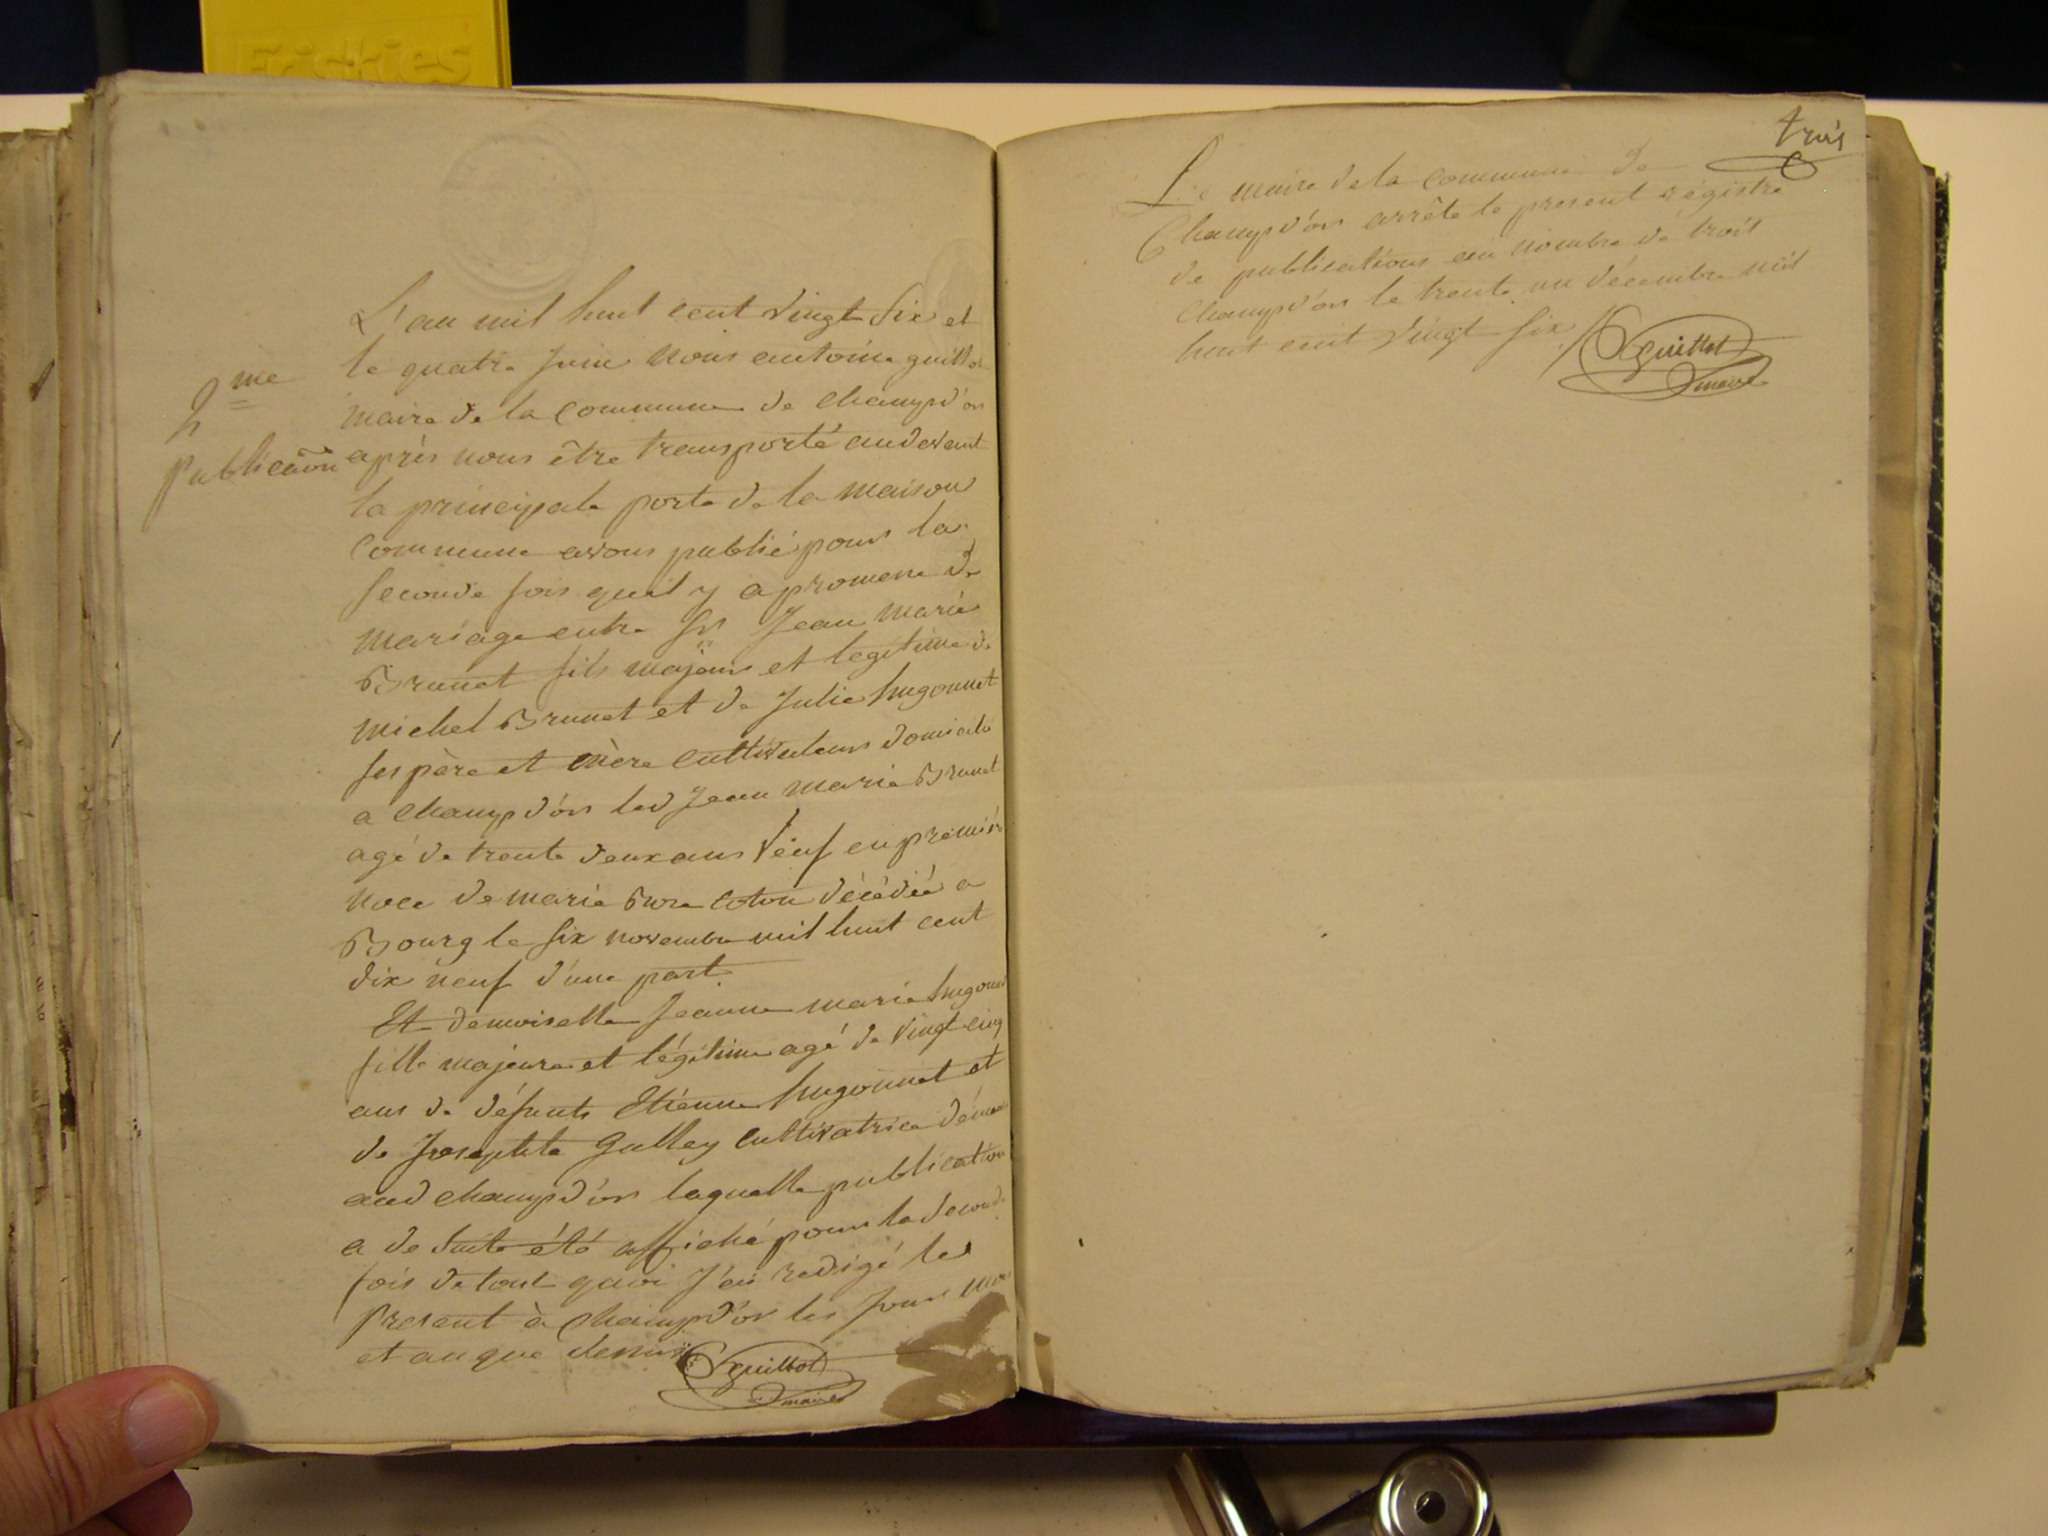 Friskies
2me
Publication
L'an mil huit cent vingt six et
le quatre Juin nous antoine guillot
maire de la commune de Champd'or
après nous être transporté audevant
la principale porte de la maison
Commune avons publié pour la
seconde fois quil y a promesse de
mariage entre Sr Jean Marie
Brunet fils majeur et legitime de
Michel Brunet et de Julie hugonnet
ses père et mère cultivateurs domicilié
a Champd'or led Jean Marie Brunet
agé de trente deux ans Veuf en premier
noce de marie coton décédée a
Bourg le six novembre mil huit cent
dix neuf d'une part
Et demoiselle Jeanne marie hugonnet
fille majeure et légitime agé de Vingt cinq
ans de défunts Etienne hugonnet et
de Josephte Gallay Cultivatrice
aud Champd'or laquelle publication
a de suite été affiché pour la seconde
fois de tout quoi J'ai redigé le
Present à Champd'or les Jour mois
et an que dessus
guillot
maire
trois
Le maire de la commune de
Champd'or arrête le present régistre
de publications au nombre de trois
Champd'or le trente un décembre mil
huit cent vingt six
guillot
maire